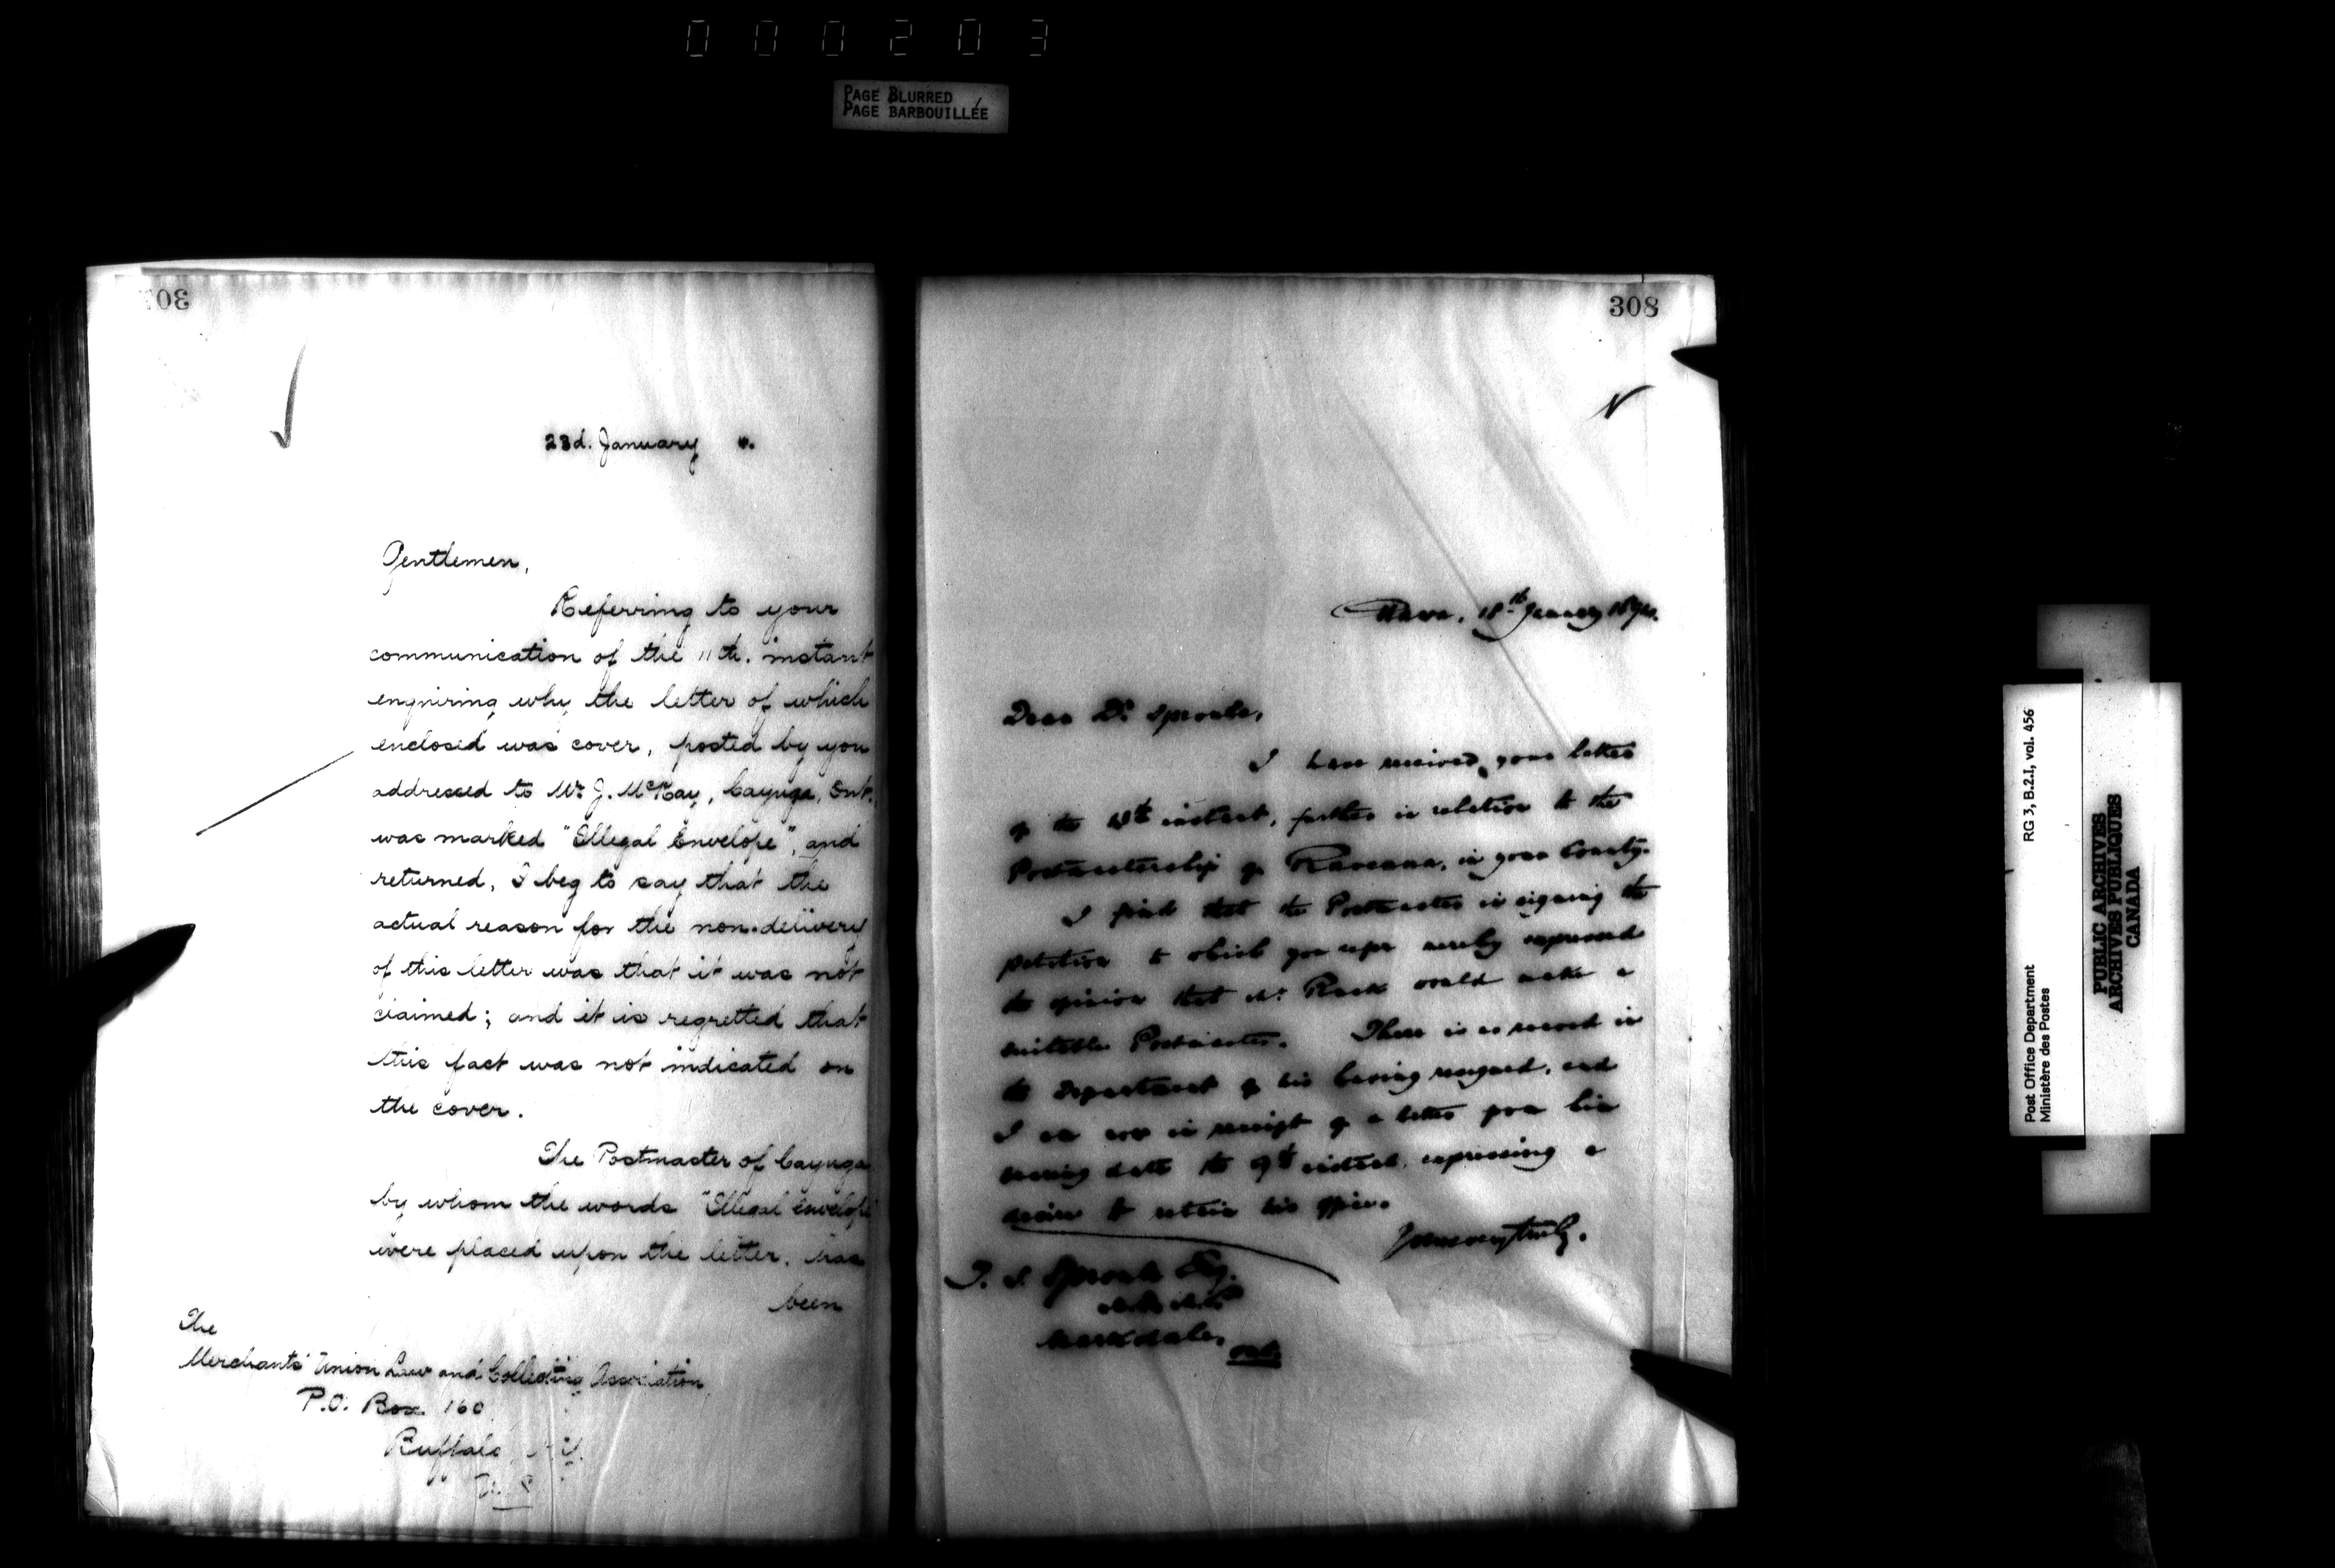 000203
PAGE BLURRED
PAGE BARBOUILLÉE
23d. January 4.
Gentlemen,
Referring to your
communication of the 11th. instant
enquiring why the letter of which
enclosed was cover, posted by you
addressed to Mr. J. McKay, Cayuga, Ont.
was marked "Illegal Envelope", and
returned, I beg to say that the
actual reason for the non-delivery
of this letter was that it was not
claimed; and it is regretted that
this fact was not indicated on
the cover.
The Postmaster of Cayuga
by whom the words "Illegal Envelope
were placed upon the letter, has
been
The
Merchants' Union Law and Collecting Association,
P.O. Box 160
Buffalo, N.Y.
U.S.
308
Ottawa, 18th January
Dear Dr. Sproule,
I have received your letter
of the instant, further in relation to the
Postmastership of Ravenna, in your County.
I find that the Postmaster in signing the
petition to which you refer merely expressed
the opinion that Mr. would make a
suitable Postmaster. There is no record in
the Department of his having resigned, and
I am now in receipt of a letter from him
bearing date the 9th instant, expressing a
desire to retain his office.
Yours very truly,
T. S. Sproule Esq.
Markdale,
Ont.
Post Office Department
Ministère des Postes
RG 3, B.2.I, vol. 456
PUBLIC ARCHIVES
ARCHIVES PUBLIQUES
CANADA